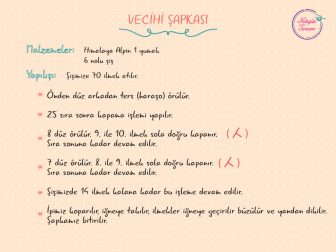 VECİHİ ŞAPKASI
Malzemeler: Himalaya Alpin 1 yumak
6 nolu şiş
Yapılışı: Şişimize 70 ilmek atılır.
* Önden düz arkadan ters (haraşo) örülür.
* 25 sıra sonra kapama işlemi yapılır.
* 8 düz örülür. 9. ile 10. ilmek sola doğru kapanır. (⋋)
Sıra sonuna kadar devam edilir.
* 7 düz örülür. 8. ile 9. ilmek sola doğru kapanır. (⋋)
Sıra sonuna kadar devam edilir.
* Şişimizde 14 ilmek kalana kadar bu işleme devam edilir.
* İpimiz koparılır, iğneye takılır, ilmekler iğneye geçirilir büzülür ve yandan dikilir.
Şapkamız bitirilir.